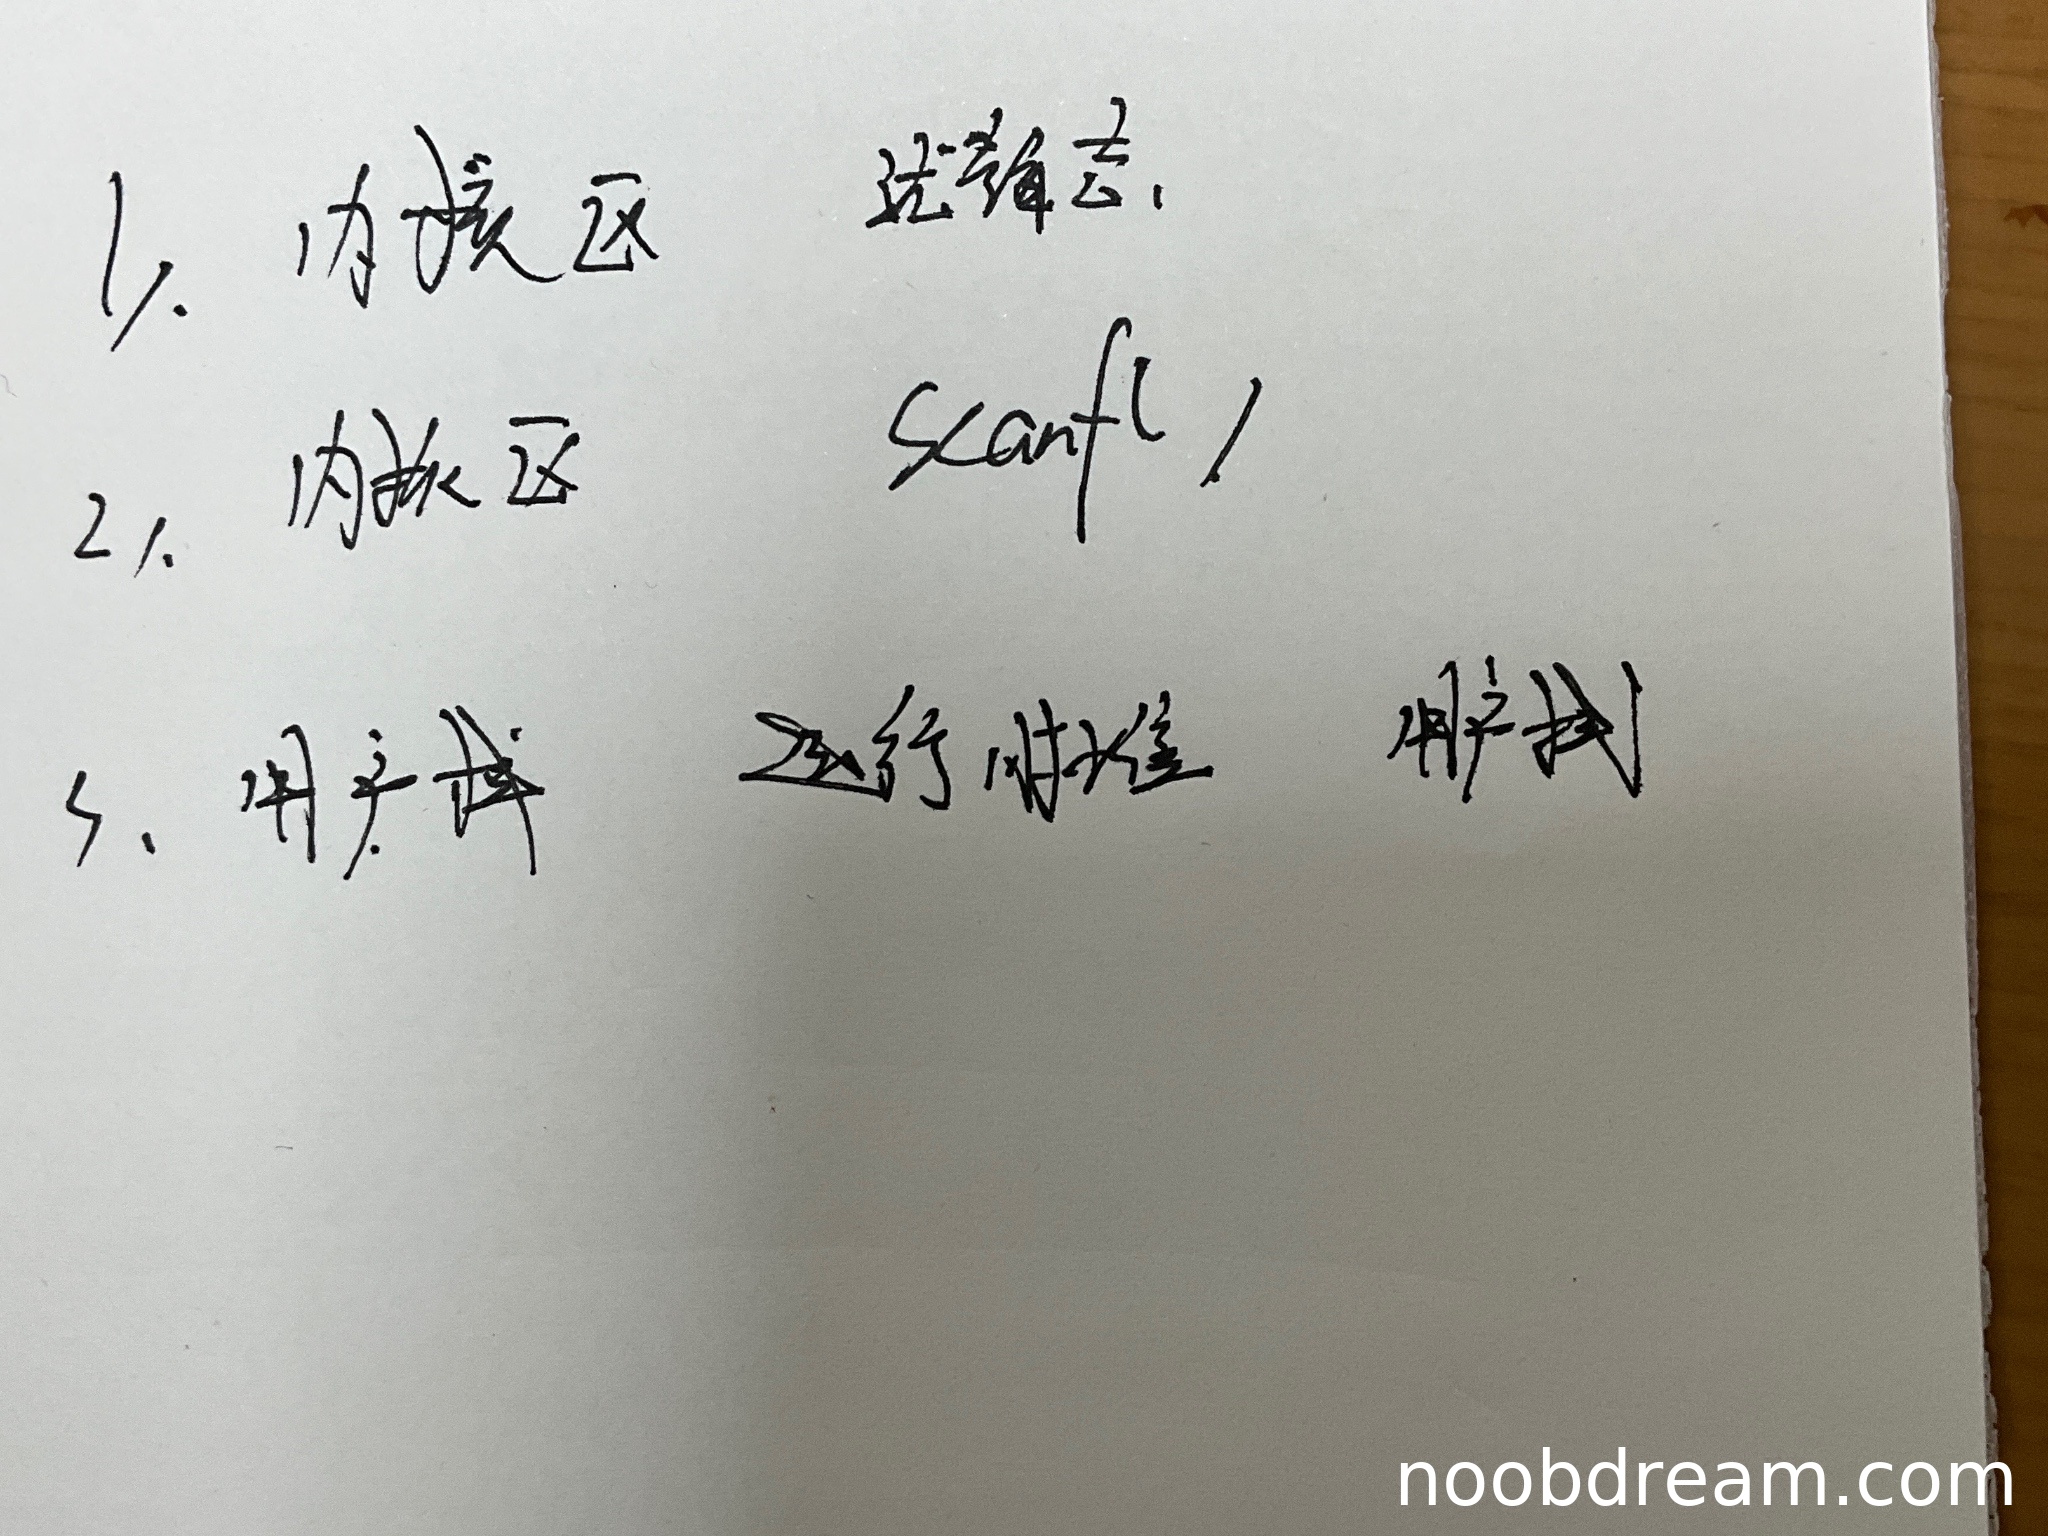 1). 内核区
2). 内核区 scanf()
3. 用户栈 运行时堆 用户栈
noobdream.com